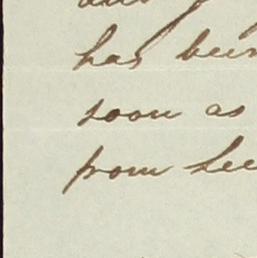 and
has been
soon as
from see